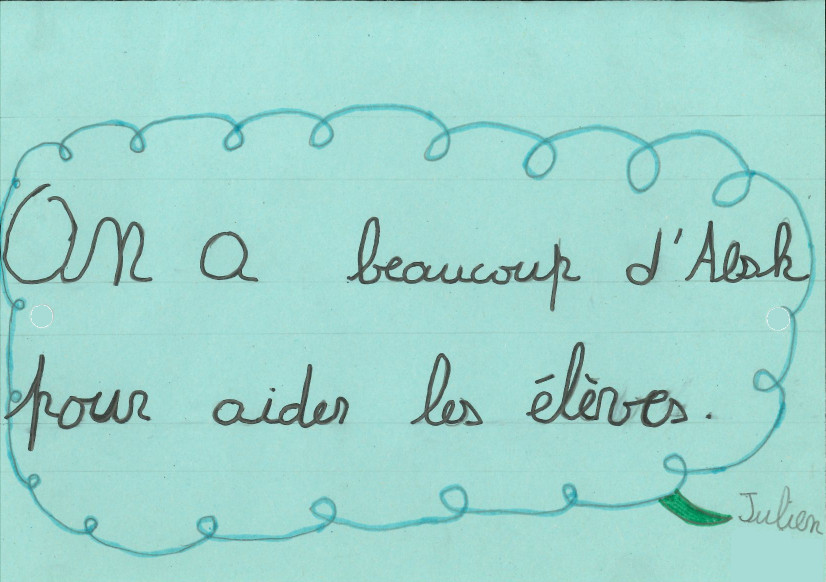 On a beaucoup d'Aesh
pour aider les élèves.
Julien